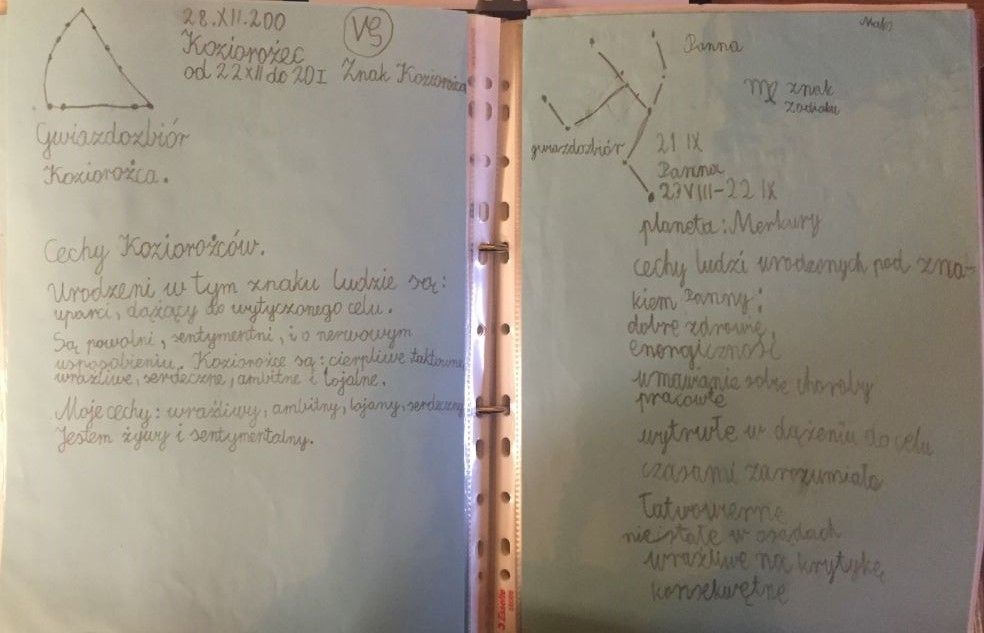 28.XII.200
Koziorożec
od 22XII do 20I Znak Koziorożca
Gwiazdozbiór
Koziorożca.
Cechy Koziorożców.
Urodzeni w tym znaku ludzie są:
uparci, dążący do wytyczonego celu.
Są powolni, sentymentni, i o nerwowym
usposobieniu. Koziorożce są: cierpliwe taktowne
wrażliwe, serdeczne, ambitne i lojalne.
Moje cechy: wrażliwy, ambitny, lojany, serdeczny
Jestem żywy i sentymentalny.
Maks
Panna
znak
zodiaku
gwiazdozbiór
21 IX
Panna
23VIII-22 IX
planeta: Merkury
cechy ludzi urodzonych pod zna-
kiem Panny:
dobre zdrowie,
energiczność
wmawianie sobie choroby
pracowite
wytrwłe w dążeniu do celu
czasami zarozumiałe
łatwowierne
niestałe w osądach
wrażliwe na krytykę
konsekwętne
Esselte